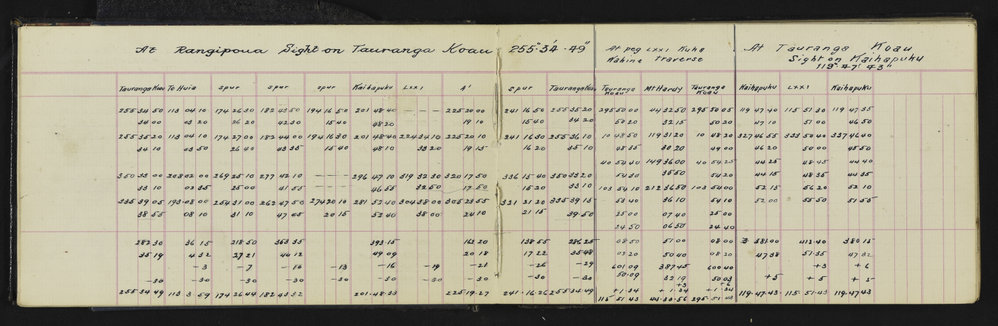 At Rangipoua Sight on Tauranga Koau 255° 34' 49"
At peg LXXI Kuha Wahine Traverse
At Tauranga Koau Sight on Kaihapuku 119° 47' 43"
Tauranga Koau To Huia spur spur spur Kaihapuku LXXI A' spur Tauranga Koau Tauranga Koau Mt Hardy Tauranga Koau Kaihapuku LXXI Kaihapuku
255 34 50 113 04 10 174 26 30 182 43 50 194 16 50 201 48 40 225 20 00 241 16 50 255 35 20 295 50 00 44 32 50 295 50 05 119 47 40 115 51 30 119 47 35
34 00 03 20 26 20 42 30 15 40 48 20 19 10 15 40 34 20 50 20 32 15 50 20 47 10 51 00 46 50
255 35 20 113 04 10 174 27 00 182 44 00 194 16 30 201 48 40 224 34 10 225 20 10 241 16 30 255 36 10 10 48 50 119 31 20 10 48 20 327 46 55 333 50 40 337 46 40
34 10 03 50 26 40 43 35 15 40 48 10 33 20 19 15 16 20 35 10 48 35 30 20 49 00 46 20 50 00 45 50
40 54 40 149 36 00 40 54 25 44 25 48 45 44 40
350 35 00 208 02 00 269 25 10 277 42 10 296 47 10 319 32 30 320 17 50 336 15 40 350 33 20 54 30 35 50 54 20 44 15 48 35 44 35
33 10 02 35 25 00 41 55 46 55 32 50 17 50 15 20 33 10 103 54 10 212 36 50 103 54 00 52 15 56 20 52 10
335 39 05 193 08 00 254 31 00 262 47 50 274 20 10 281 52 40 304 38 00 305 23 55 321 21 20 335 39 15 53 40 36 10 54 10 52 00 55 50 51 55
38 55 08 10 31 10 47 05 20 15 52 40 38 00 24 10 21 15 39 50 25 00 07 40 25 00
24 50 06 50 24 40
282 30 36 15 218 50 363 35 393 15 162 20 138 55 286 25 08 50 51 00 08 00 381 00 412 40 380 15
35 19 4 32 27 21 49 09 20 18 17 22 35 48 50 40 08 20 47 38 51 35 47 32
-3 -7 -10 -13 -16 -19 -21 -26 -29 601 09 387 45 600 40 +3 +6
-30 -30 -30 -30 -30 -30 -30 -30 50 09 32 19 50 03 +5 -5 +5
+1.34 +1.34 +1.34
255 34 49 113 3 59 174 26 44 182 43 32 201 48 33 225 19 27 241 16 26 255 34 49 115 51 43 44 30 56 295 51 43 119 47 43 115 51 43 119 47 43